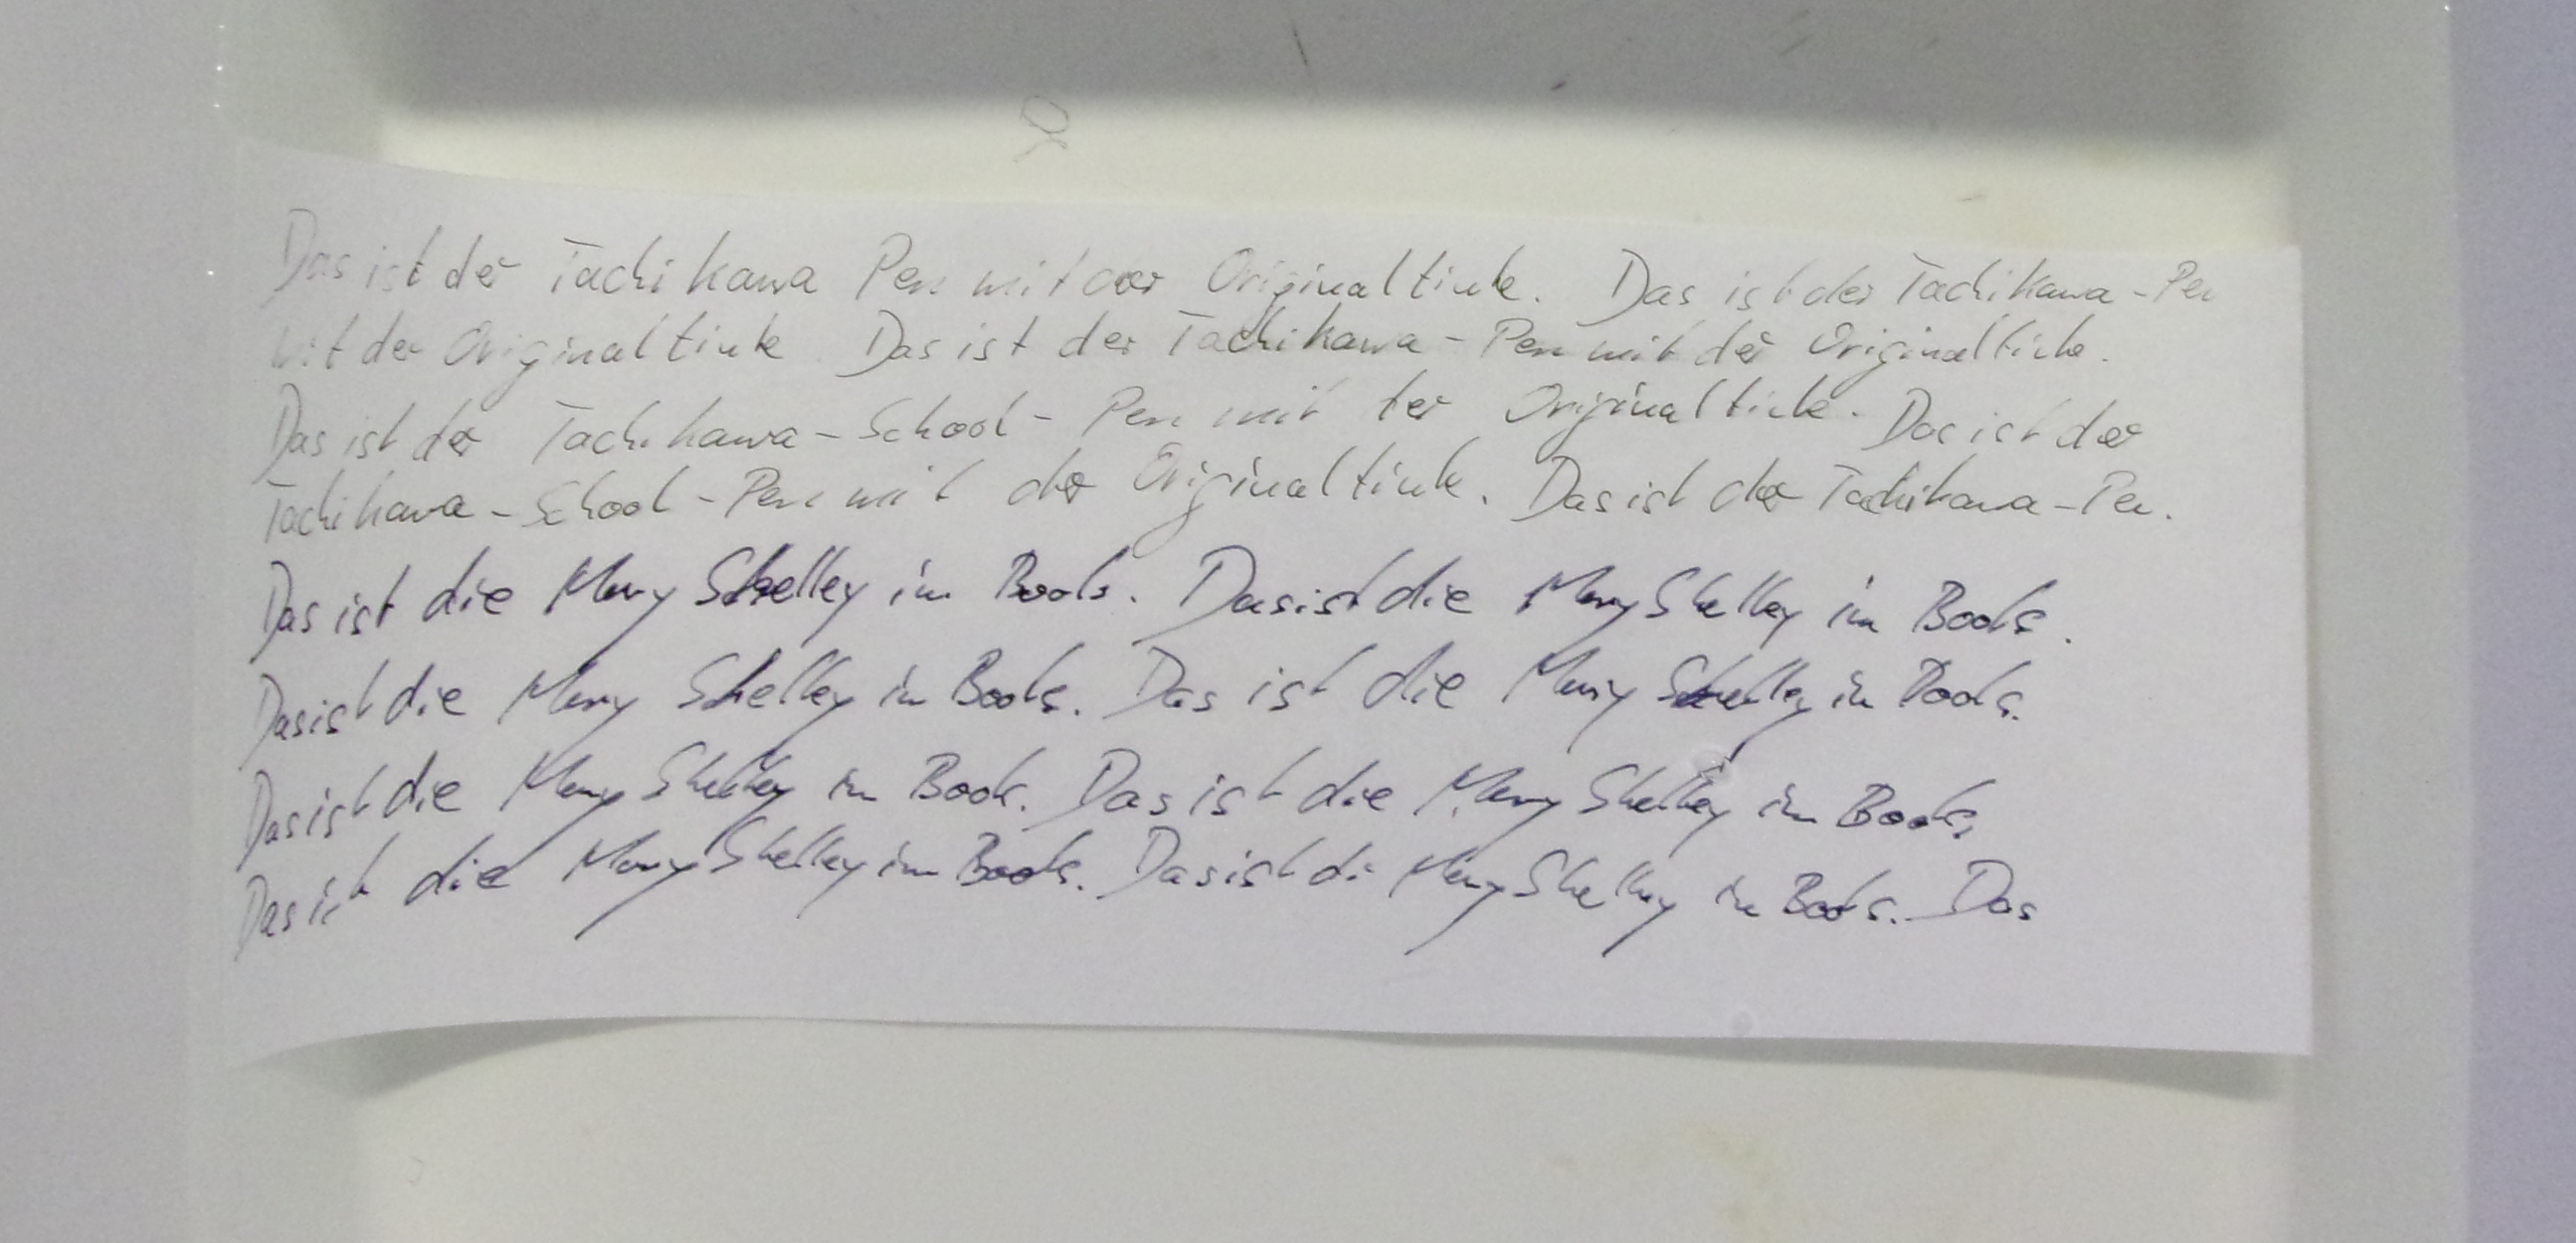 Das ist der Tachikawa Pen mit der Originaltinte. Das ist der Tachikawa-Pen
mit der Originaltinte. Das ist der Tachikawa-Pen mit der Originaltinte.
Das ist der Tachikawa-School-Pen mit der Originaltinte. Das ist der
Tachikawa-School-Pen mit der Originaltinte. Das ist der Tachikawa-Pen.
Das ist die Mary Shelley im Books. Das ist die Mary Shelley im Books.
Das ist die Mary Shelley im Books. Das ist die Mary Shelley im Books.
Das ist die Mary Shelley im Book. Das ist die Mary Shelley im Books.
Das ist die Mary Shelley im Books. Das ist di Mary Shelley im Books. Das